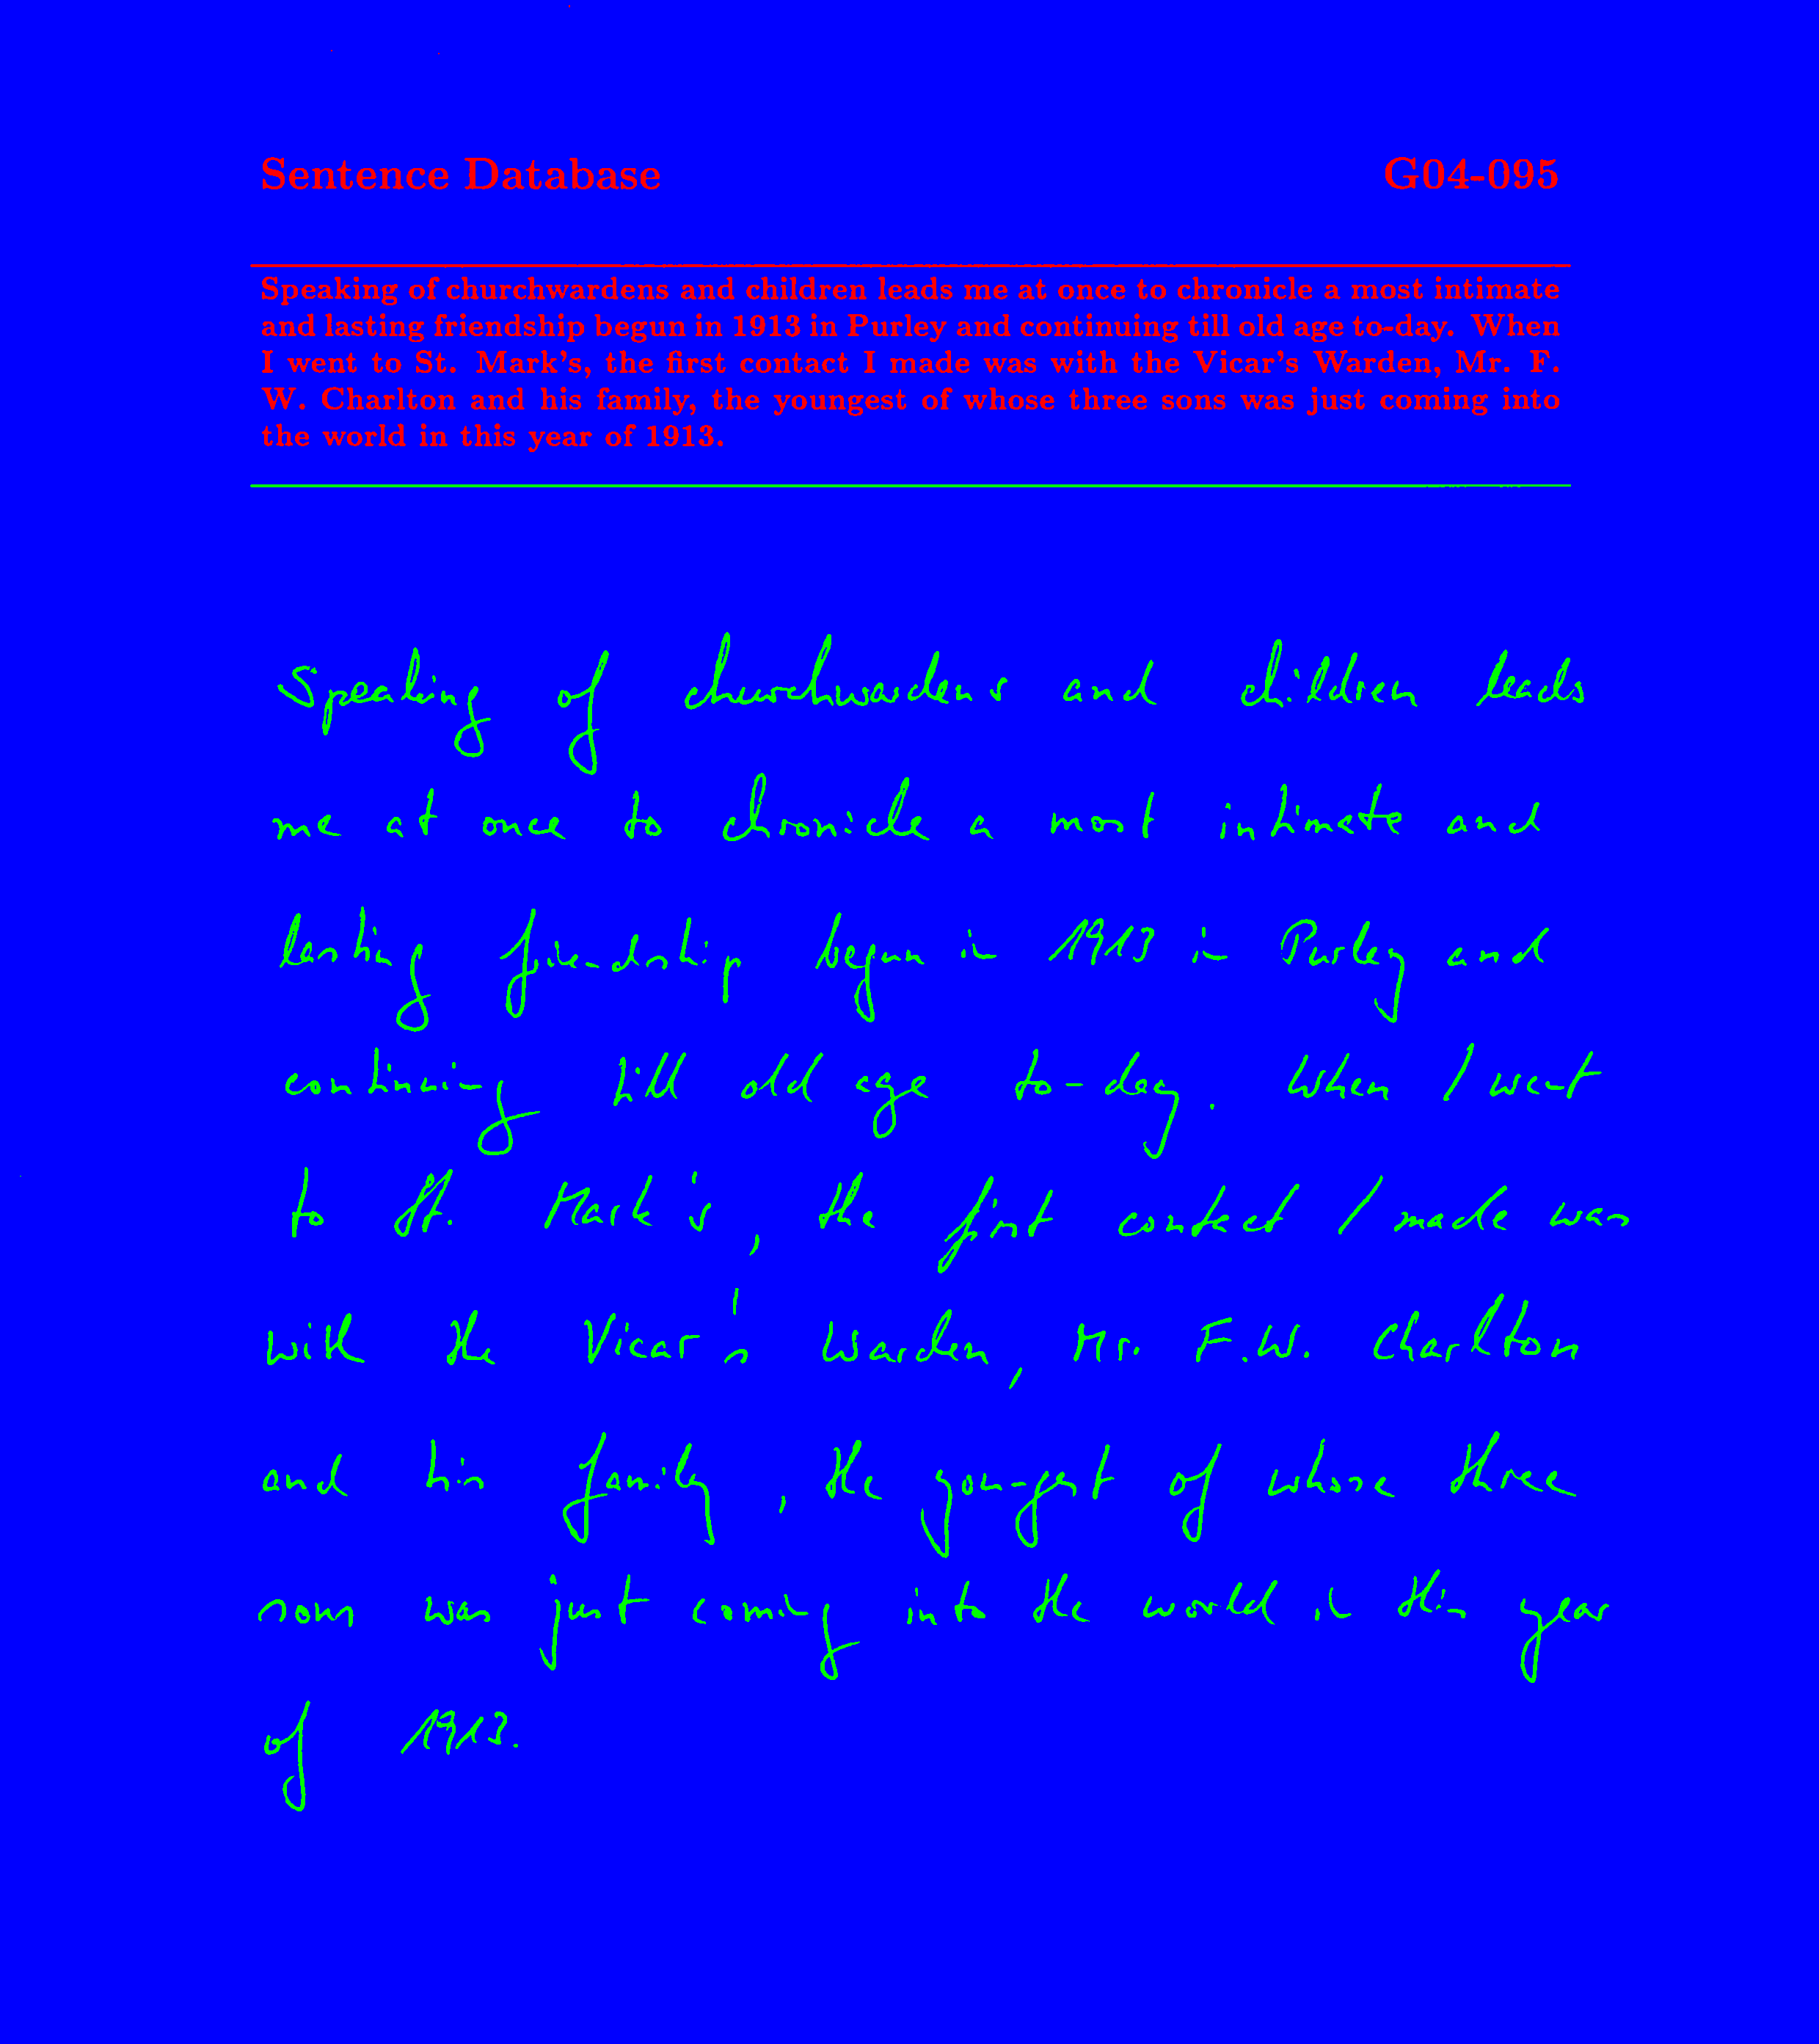 Sentence Database G04-095
Speaking of churchwardens and children leads me at once to chronicle a most intimate
and lasting friendship begun in 1913 in Purley and continuing till old age to-day. When
I went to St. Mark's, the first contact I made was with the Vicar's Warden, Mr. F.
W. Charlton and his family, the youngest of whose three sons was just coming into
the world in this year of 1913.
Speaking of churchwardens and children leads
me at once to chronicle a most intimate and
lasting friendship begun in 1913 in Purley and
continuing till old age to-day. When I went
to St. Mark's, the first contact I made was
with the Vicar's Warden, Mr. F.W. Charlton
and his family, the youngest of whose three
sons was just coming into the world in this year
of 1913.